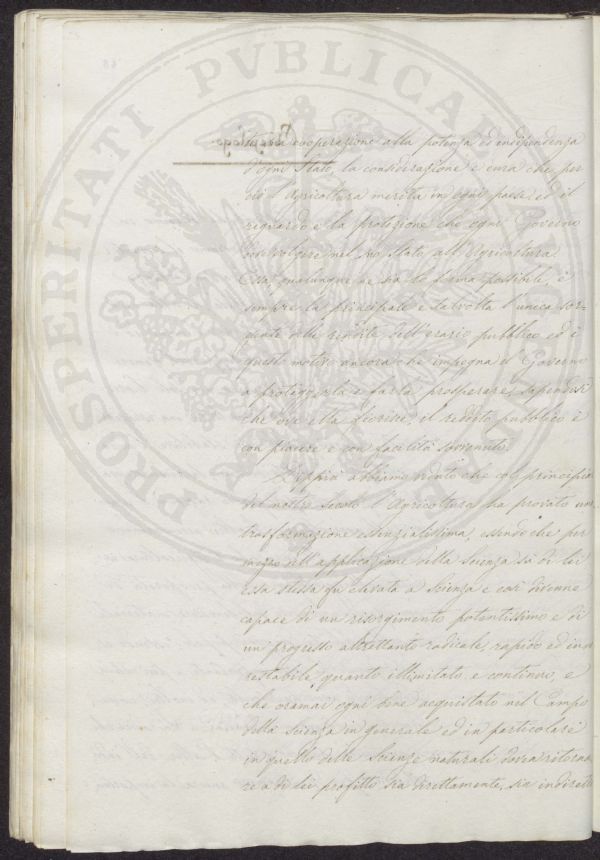 PROSPERITATI PUBLICAE
cooperazione alla potenza ed independenza
d'ogni Stato, la considerazione e cura che per
ciò l'Agricoltura merita in ogni paese, e il
riguardo e la protezione che ogni Governo
nel suo Stato all'Agricoltura.
Essa, qualunque ne sia la forma possibile, è
sempre la principale e talvolta l'unica sor-
gente delle rendite dell'erario pubblico ed è
questo motivo ancora che impegna il Governo
a proteggerla e farla prosperare, sapendosi
che ove ella fiorisce, il reddito pubblico è
con piacere e con facilità sovvenuto.
Dippiù abbiamo veduto che col principia
del nostro secolo l'Agricoltura ha provato una
trasformazione essenzialissima, essendo che per
mezzo dell'applicazione della Scienza sù di lei
essa stessa fu elevata a Scienza e così divenne
capace di un risorgimento potentissimo e di
un progresso altrettanto radicale, rapido ed inar
restabile, quanto illimitato e continuo, e
che oramai ogni bene acquistato nel Campo
della Scienza in generale ed in particolare
in quello delle Scienze naturali dovea ritorna
re a di lei profitto sia direttamente, sia indirett